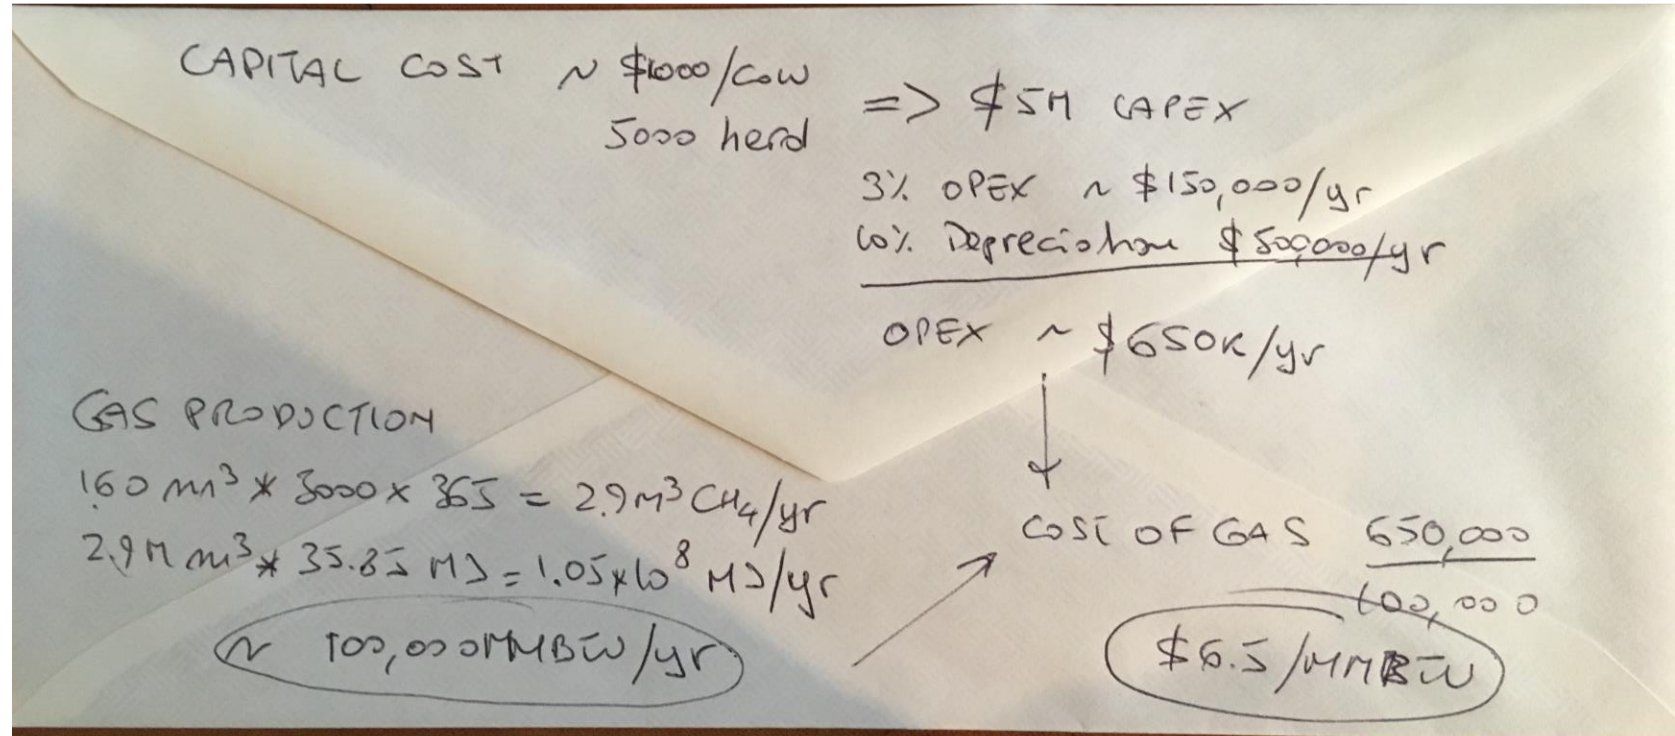 CAPITAL COST ~ $1000/cow
5000 herd
=> $5M CAPEX
3% OPEX ~ $150,000/yr
10% Depreciation $500,000/yr
OPEX ~ $650K/yr
GAS PRODUCTION
1.60 m³ * 5000 x 365 = 2.9M³ CH₄/yr
2.9M m³ * 35.85 MJ = 1.05x10⁸ MJ/yr
~ 100,000 MMBTU/yr
COST OF GAS 650,000
100,000
$6.5/MMBTU